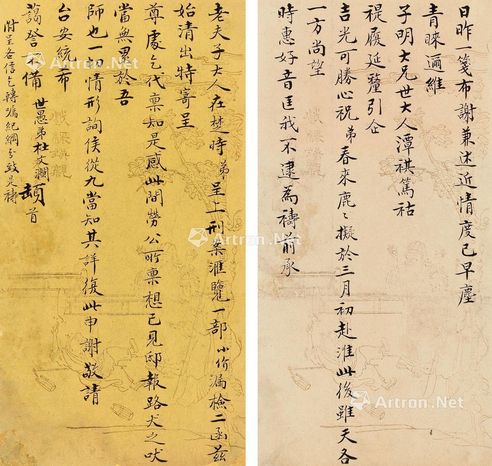 日昨一箋布謝兼述近情度已早塵
青睞遍維
子明大兄世大人潭祺篤祜
禔履延釐引企
吉光可勝心祝弟春來鹿鹿擬於三月初赴淮此後雖天各
一方尚望
時惠好音匡我不逮為禱前承
老夫子大人在楚時弟呈上刑案滙覽一部小价漏檢二函茲
始清出特寄呈
尊處乞代稟知是感此間勞公所稟想已見邸報路大之吠
當無畏於吾
師也一切情形詢侯從九當知其詳復此申謝敬請
台安統布
藹詧不備 世愚弟杜文瀾頓首
附呈各信乞轉飭紀綱分致是禱
Artron.Net
Artron.Net
Artron.Net
Artron.Net